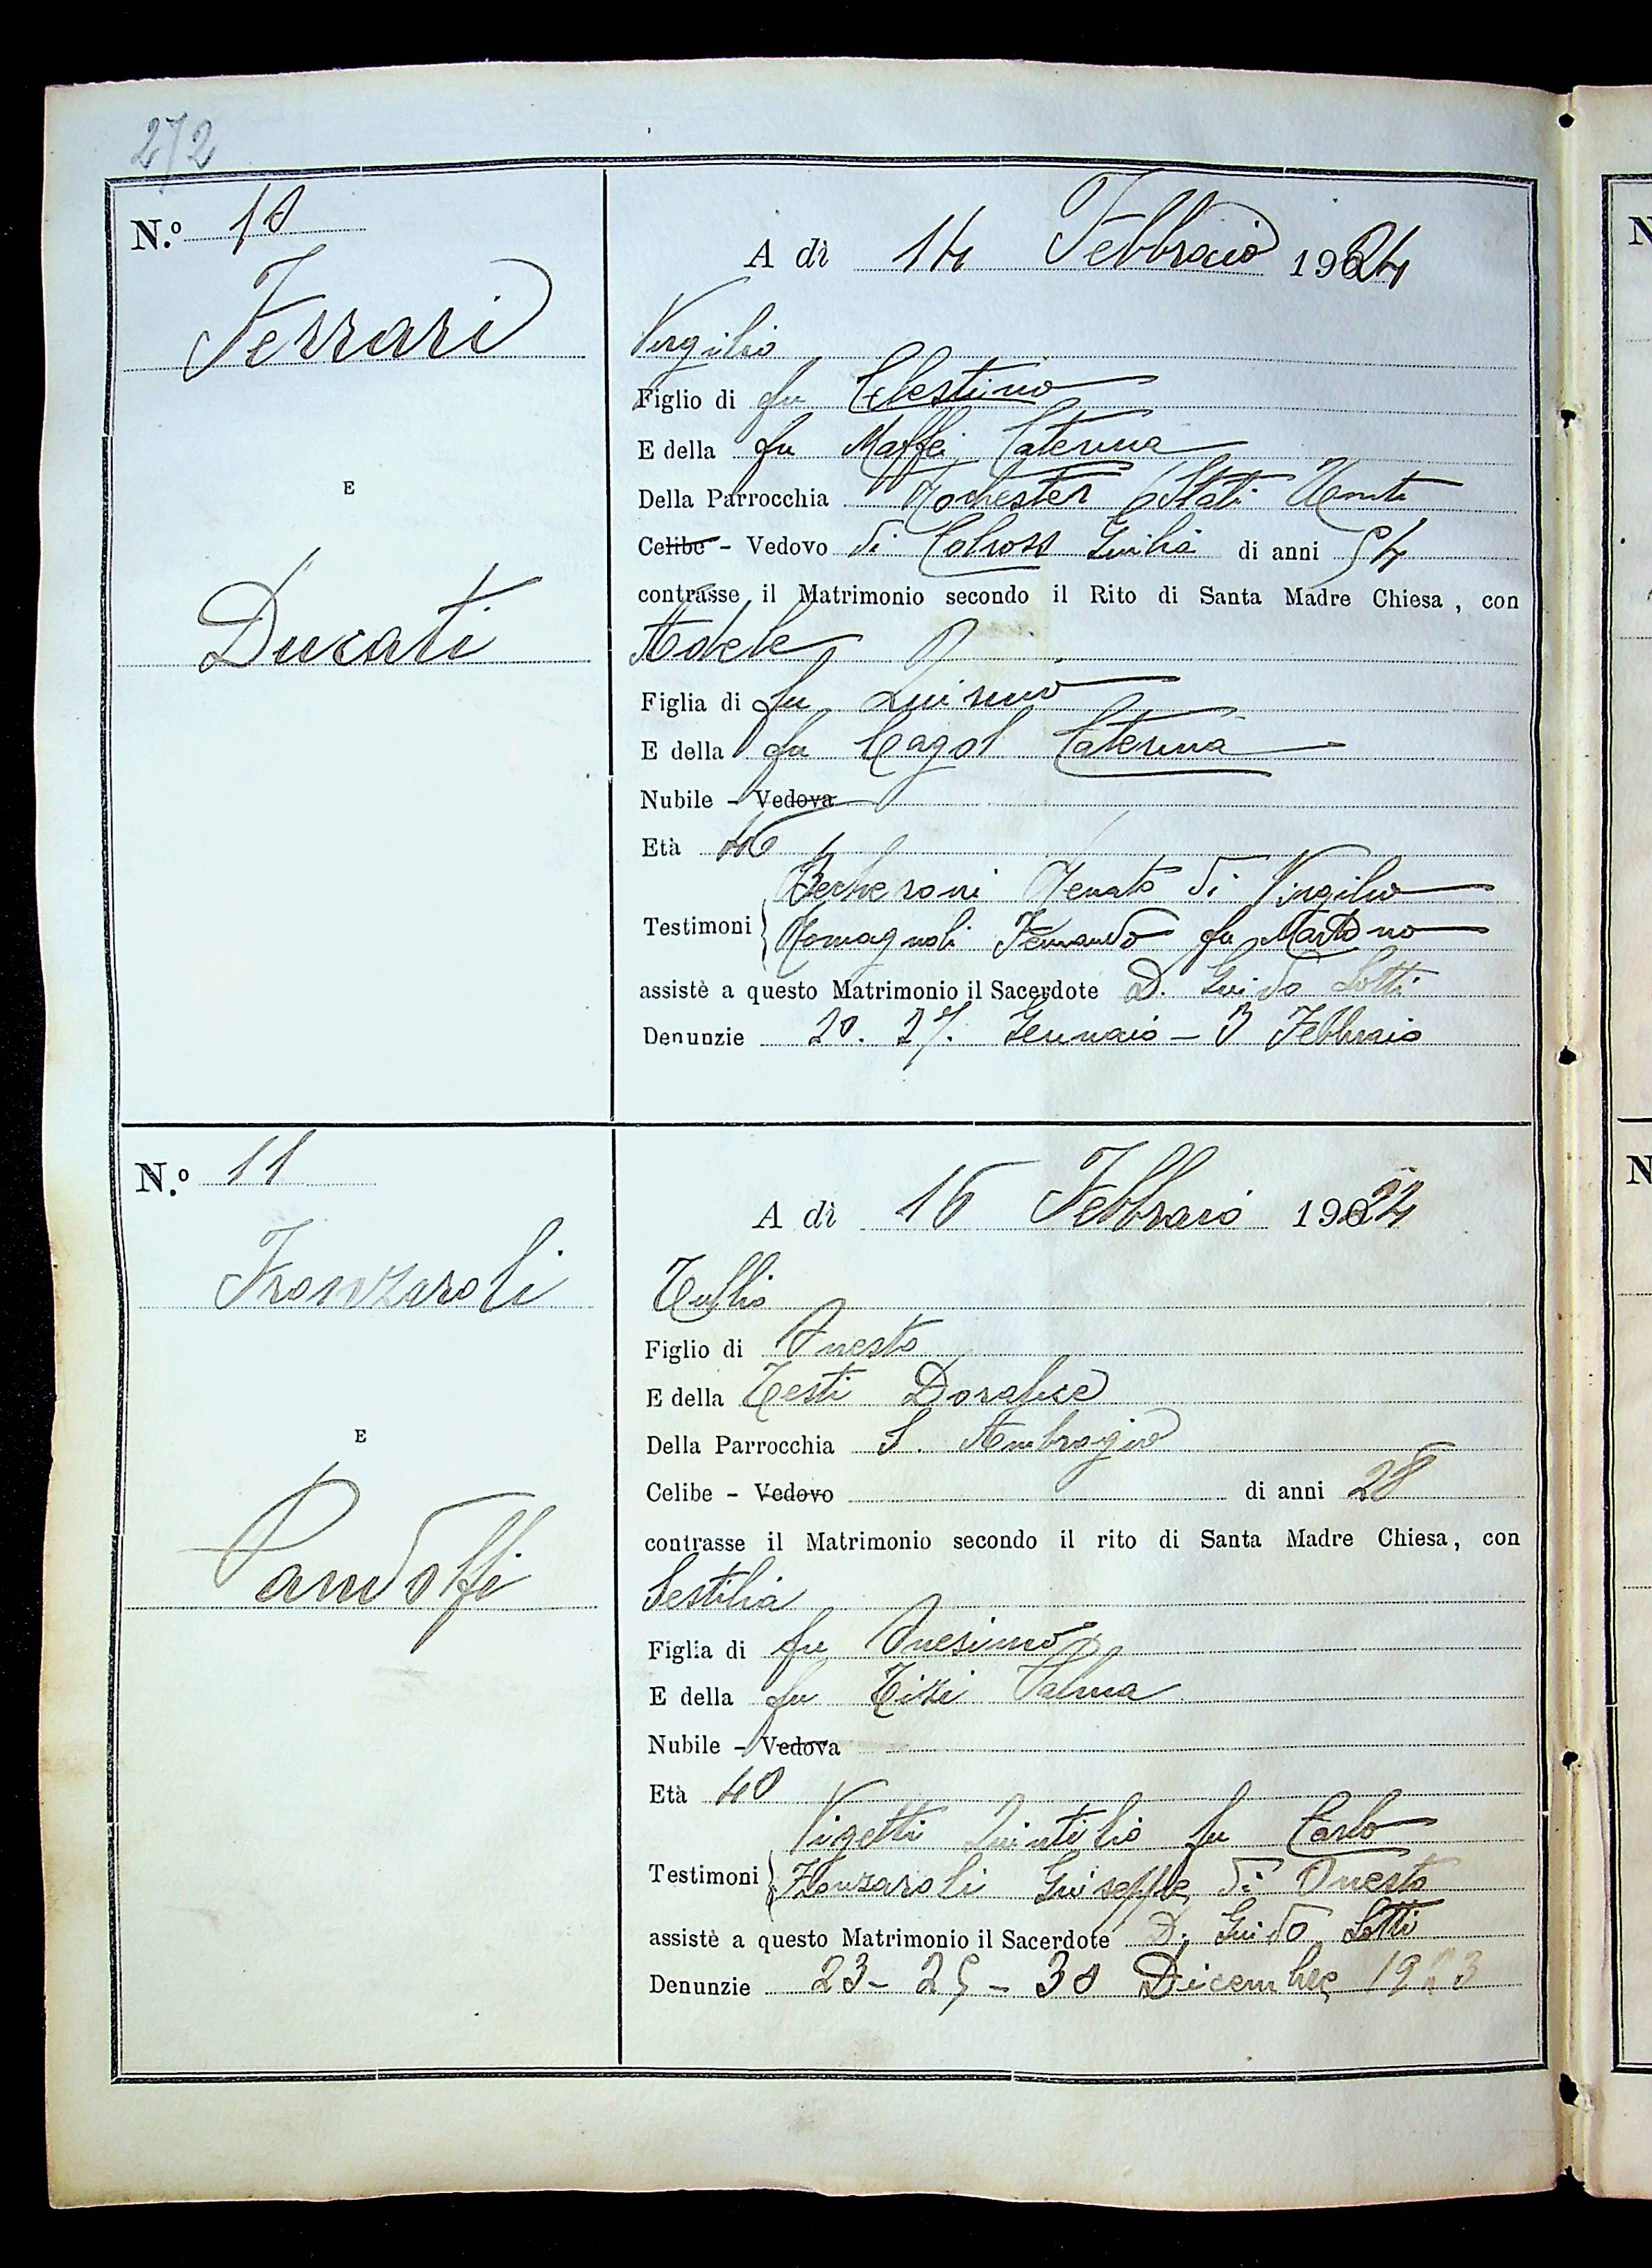 272
N.º 10
A dì 14 Febbraio 1924
Ferrari
Virgilio
Figlio di fu Celestino
E della fu Maffei Caterina
E
Della Parrocchia Rochester (Stati Uniti
Celibe - Vedovo di Colross Giulia di anni 54
contrasse il Matrimonio secondo il Rito di Santa Madre Chiesa, con
Ducati
Adele
Figlia di fu Quirino
E della fu Cagol Caterina
Nubile - Vedova
Età 46
Renato di Virgilio
Testimoni Romagnoli Fernando fu Martino
assistè a questo Matrimonio il Sacerdote D. Guido Lotti
Denunzie 20. 27. Gennaio - 3 Febbraio
N.º 11
A dì 16 Febbraio 1924
Fronzaroli
Tullio
Figlio di Onesto
E della Testi Doralice
Della Parrocchia S. Ambrogio
E
Celibe - Vedovo di anni 28
contrasse il Matrimonio secondo il rito di Santa Madre Chiesa, con
Pandolfi
Sestilia
Figlia di fu Onesimo
E della fu Tizi Palma
Nubile - Vedova
Età 40
Vigetti Quintilio fu Carlo
Testimoni Fronzaroli Giuseppe di Onesto
assistè a questo Matrimonio il Sacerdote D. Guido Lotti
Denunzie 23 - 25 - 30 Dicembre 1923
N
N